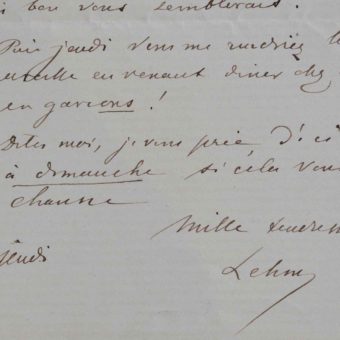 si bon vous semblerait.
Puis jeudi vous me rendriez l
en venant diner chez
en garçons !
Dites moi, je vous prie d'ici
à dimanche si cela vous
chausse
Mille tendresse
Jeudi
Lehm